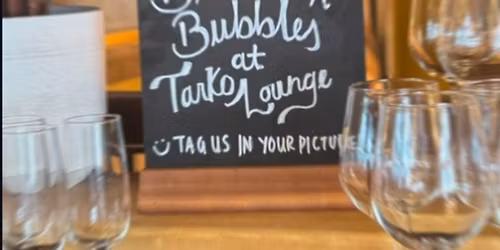 Bubbles
at
Tarko Lounge
TAG US IN YOUR PICTURE